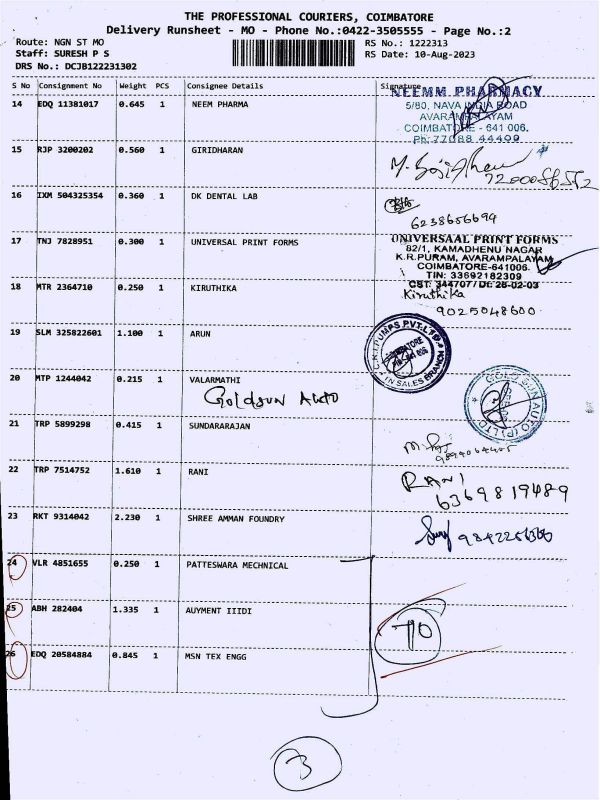 THE PROFESSIONAL COURIERS, COIMBATORE
Delivery Runsheet - MO - Phone No.:0422-3505555 - Page No.:2
Route: NGN ST MO RS No.: 1222313
Staff: SURESH P S RS Date: 10-Aug-2023
DRS No.: DCJB122231302
S No Consignment No Weight PCS Consignee Details Signature
14 EDQ 11381017 0.645 1 NEEM PHARMA
NEEMM PHARMACY
5/80, NAVA INDIA ROAD
AVARAMPALAYAM
COIMBATORE - 641 006.
Ph: 77088 44409
15 RJP 3200202 0.560 1 GIRIDHARAN
16 IXM 504325354 0.360 1 DK DENTAL LAB
6238656694
17 TNJ 7828951 0.300 1 UNIVERSAL PRINT FORMS
UNIVERSAAL PRINT FORMS
82/1, KAMADHENU NAGAR
K.R.PURAM, AVARAMPALAYAM
COIMBATORE-641006.
TIN: 33692182309
CST: 344707/Dt: 26-02-03
18 MTR 2364710 0.250 1 KIRUTHIKA
Kiruthika
9025048600
19 SLM 325822601 1.100 1 ARUN
C.R.I PUMPS PVT.LTD
COIMBATORE
TN SALES BRANCH
20 MTP 1244042 0.215 1 VALARMATHI
Goldsun Auto
GOLD SUN AUTO (P) LTD
21 TRP 5899298 0.415 1 SUNDARARAJAN
22 TRP 7514752 1.610 1 RANI
RANI
6369819489
23 RKT 9314042 2.230 1 SHREE AMMAN FOUNDRY
24 VLR 4851655 0.250 1 PATTESWARA MECHNICAL
25 ABH 282404 1.335 1 AUYMENT IIIDI
26 EDQ 20584884 0.845 1 MSN TEX ENGG
3